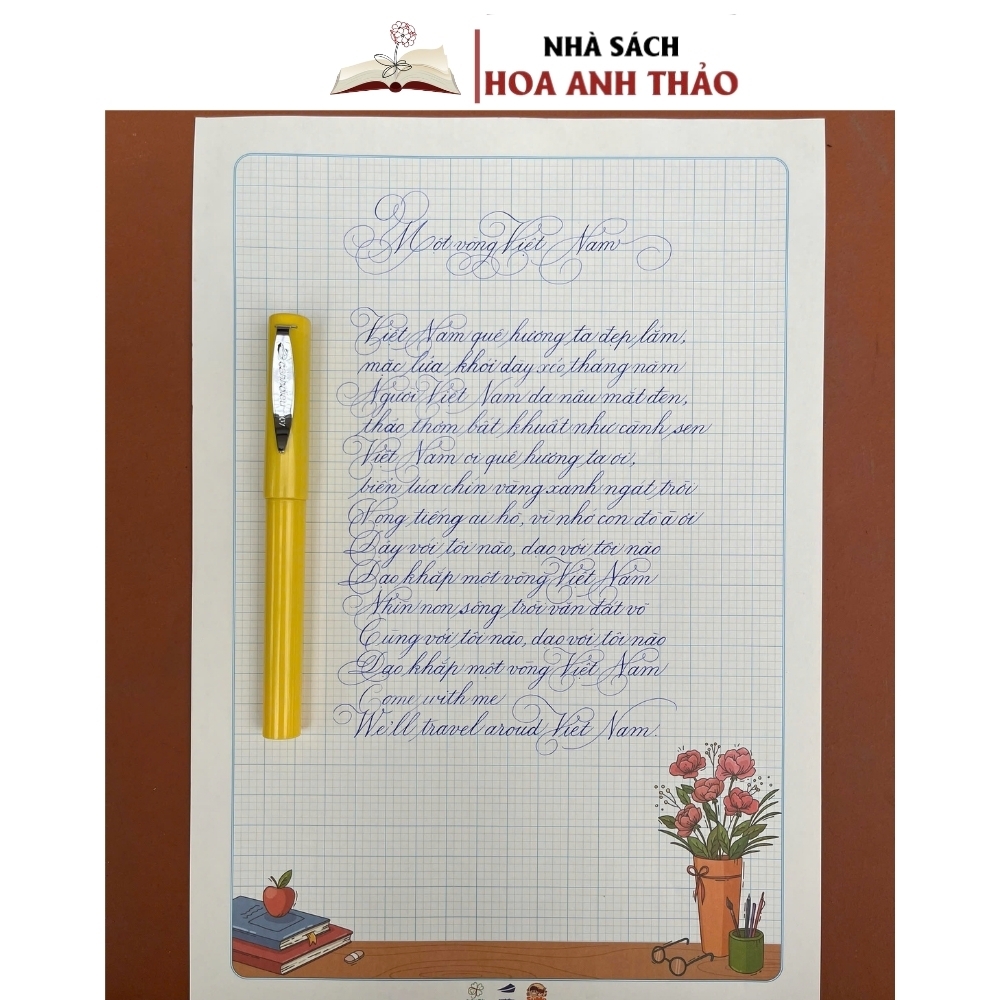 NHÀ SÁCH
HOA ANH THẢO
Một vòng Việt Nam
Việt Nam quê hương ta đẹp lắm,
mặc lửa khói dãy xéo tháng năm
Người Việt Nam da nâu mắt đen,
thảo thơm bất khuất như cánh sen
Việt Nam ơi quê hương ta ơi,
biển lúa chín vàng xanh ngát trời
Vọng tiếng ai hò, vì nhớ con đò ả ơi
Dậy với tôi nào, dạo với tôi nào
Dạo khắp một vòng Việt Nam
Nhìn non sông trời vân đất võ
Cùng với tôi nào, dạo với tôi nào
Dạo khắp một vòng Việt Nam
Come with me
We'll travel aroud Việt Nam.